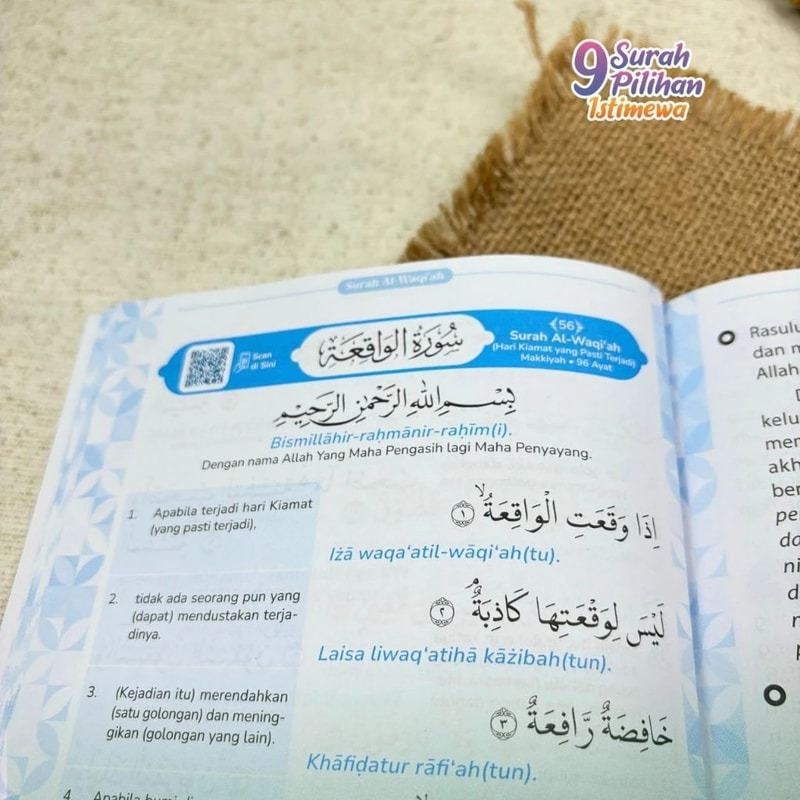 9 Surah
Pilihan
Istimewa
Surah Al-Waqi'ah
Scan
di Sini
سُورَةُ الْوَاقِعَةِ
56
Surah Al-Waqi'ah
(Hari Kiamat yang Pasti Terjadi)
Makkiyah • 96 Ayat
بِسْمِ اللّٰهِ الرَّحْمٰنِ الرَّحِيْمِ
Bismillāhir-raḥmānir-raḥīm(i).
Dengan nama Allah Yang Maha Pengasih lagi Maha Penyayang.
1. Apabila terjadi hari Kiamat
(yang pasti terjadi),
اِذَا وَقَعَتِ الْوَاقِعَةُۙ ١
Iżā waqa‘atil-wāqi‘ah(tu).
2. tidak ada seorang pun yang
(dapat) mendustakan terja-
dinya.
لَيْسَ لِوَقْعَتِهَا كَاذِبَةٌۘ ٢
Laisa liwaq‘atihā kāżibah(tun).
3. (Kejadian itu) merendahkan
(satu golongan) dan mening-
gikan (golongan yang lain).
خَافِضَةٌ رَّافِعَةٌ ٣
Khāfiḍatur rāfi‘ah(tun).
4. Apabila bumi
Rasulu
dan m
Allah
D
kelu
men
akh
ber
pe
da
ni
d
n
p